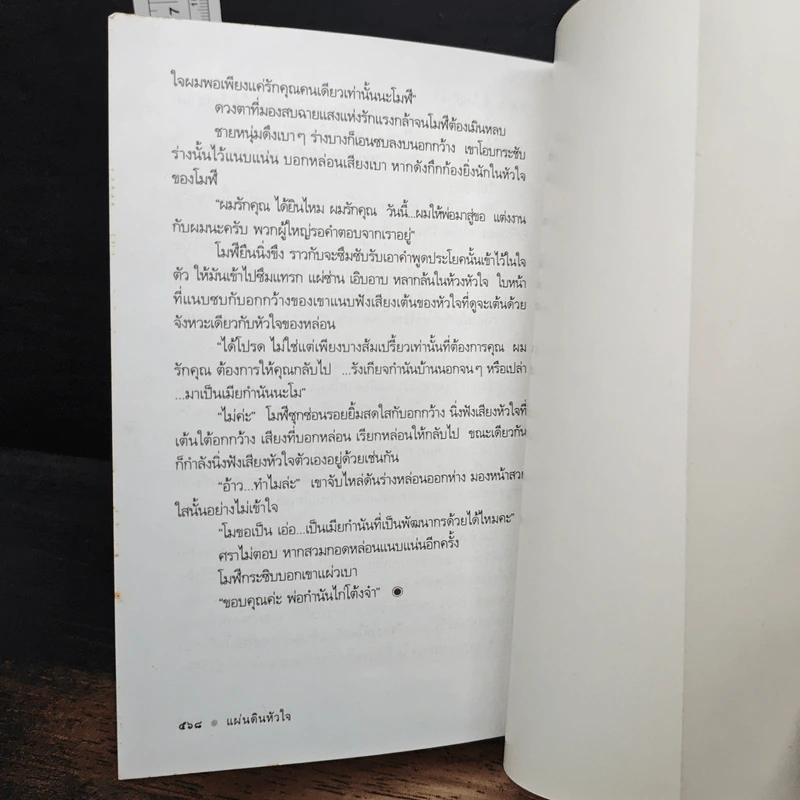 7
ใจผมพอเพียงแค่รักคุณคนเดียวเท่านั้นนะโมฬี"
ดวงตาที่มองสบฉายแสงแห่งรักแรงกล้าจนโมฬีต้องเมินหลบ
ชายหนุ่มดึงเบาๆ ร่างบางก็เอนซบลงบนอกกว้าง เขาโอบกระชับ
ร่างนั้นไว้แนบแน่น บอกหล่อนเสียงเบา หากดังกึกก้องยิ่งนักในหัวใจ
ของโมฬี
"ผมรักคุณ ได้ยินไหม ผมรักคุณ วันนี้...ผมให้พ่อมาสู่ขอ แต่งงาน
กับผมนะครับ พวกผู้ใหญ่รอคำตอบจากเราอยู่"
โมฬียืนนิ่งขึง ราวกับจะซึมซับรับเอาคำพูดประโยคนั้นเข้าไว้ในใจ
ตัว ให้มันเข้าไปซึมแทรก แผ่ซ่าน เอิบอาบ หลากล้นในห้วงหัวใจ ใบหน้า
ที่แนบซบกับอกกว้างของเขาแนบฟังเสียงเต้นของหัวใจที่ดูจะเต้นด้วย
จังหวะเดียวกับหัวใจของหล่อน
"ได้โปรด ไม่ใช่แต่เพียงบางส้มเปรี้ยวเท่านั้นที่ต้องการคุณ ผม
รักคุณ ต้องการให้คุณกลับไป ...รังเกียจกำนันบ้านนอกจนๆ หรือเปล่า
...มาเป็นเมียกำนันนะโม"
"ไม่ค่ะ" โมฬีซุกซ่อนรอยยิ้มสดใสกับอกกว้าง นิ่งฟังเสียงหัวใจที่
เต้นใต้อกกว้าง เสียงที่บอกหล่อน เรียกหล่อนให้กลับไป ขณะเดียวกัน
ก็กำลังนิ่งฟังเสียงหัวใจตัวเองอยู่ด้วยเช่นกัน
"อ้าว...ทำไมล่ะ" เขาจับไหล่ดันร่างหล่อนออกห่าง มองหน้าสวย
ใสนั้นอย่างไม่เข้าใจ
"โมขอเป็น เอ่อ...เป็นเมียกำนันที่เป็นพัฒนากรด้วยได้ไหมคะ"
ศราไม่ตอบ หากสวมกอดหล่อนแนบแน่นอีกครั้ง
โมฬีกระซิบบอกเขาแผ่วเบา
"ขอบคุณค่ะ พ่อกำนันไก่โต้งจ๋า"
๕๖๘ แผ่นดินหัวใจ